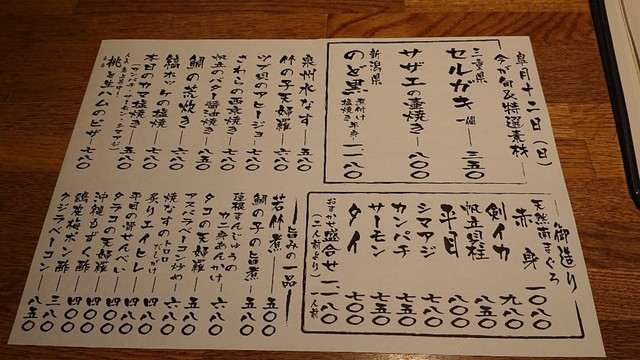 皐月十二日(日)
今が旬&特選素材
三重県
セルガキ 一個 三五〇
サザエの壷焼き 八〇〇
新潟県
のど黒 煮付け 半身 塩焼き 一一八〇
泉州水なす 五八〇
竹の子天婦羅 六八〇
ツブ貝のアヒージョ 七八〇
さわらの西京焼き 六八〇
帆立のバター醤油焼き 七八〇
鯛の荒炊き 五八〇
縞ホッケの塩焼 七八〇
本日のカマ塩焼き
(カンパチ・サーモン・シマアジ) 六八〇
桃と生ハムのピザ 七八〇
御造り
天然南まぐろ
赤身 一〇八〇
剣イカ 九八〇
帆立貝柱 八五〇
平目 八八〇
シマアジ 七八〇
カンパチ 七五〇
サーモン 七五〇
タイ 七〇〇
おまかせ 盛合せ 一一八〇
(二人前より) 一人前
旨みの一品
若竹煮 五〇〇
鯛の子の旨煮 五八〇
蓮根まんじゅうの
カニ身あんかけ 六八〇
タコの天婦羅 五八〇
アスパラベーコン炒め 六八〇
焼なすのトロロ 五八〇
炙りエイヒレ 四八〇
平目の骨せんべい 四八〇
タラコの天ぷら 四八〇
沖縄もずく酢 四〇〇
鶏皮梅ポン酢 三八〇
クジラベーコン 八五〇